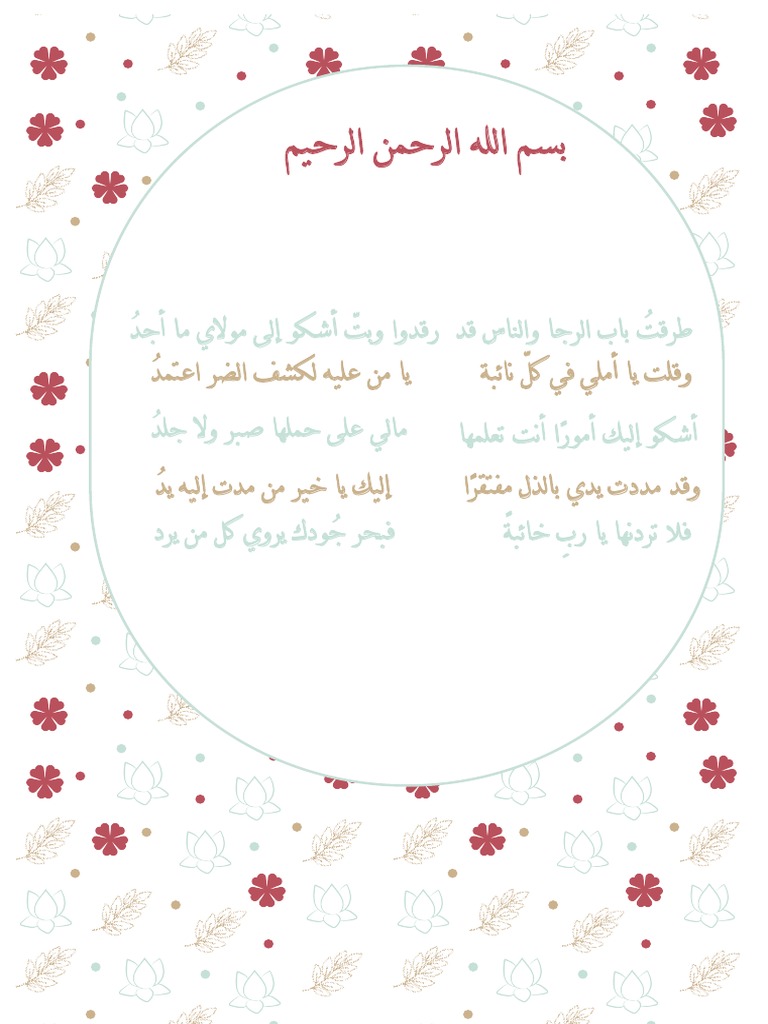 بسم الله الرحمن الرحيم
طرقتُ باب الرجا والناس قد رقدوا وبتّ أشكو إلى مولاي ما أجدُ
وقلت يا أملي في كلّ نائبة يا من عليه لكشف الضر اعتمدُ
أشكو إليك أمورًا أنت تعلمها مالي على حملها صبر ولا جلدُ
وقد مددت يدي بالذل مفتقرًا إليك يا خير من مدت إليه يدُ
فلا تردنها يا ربِ خائبةً فبحر جُودك يروي كل من يرد